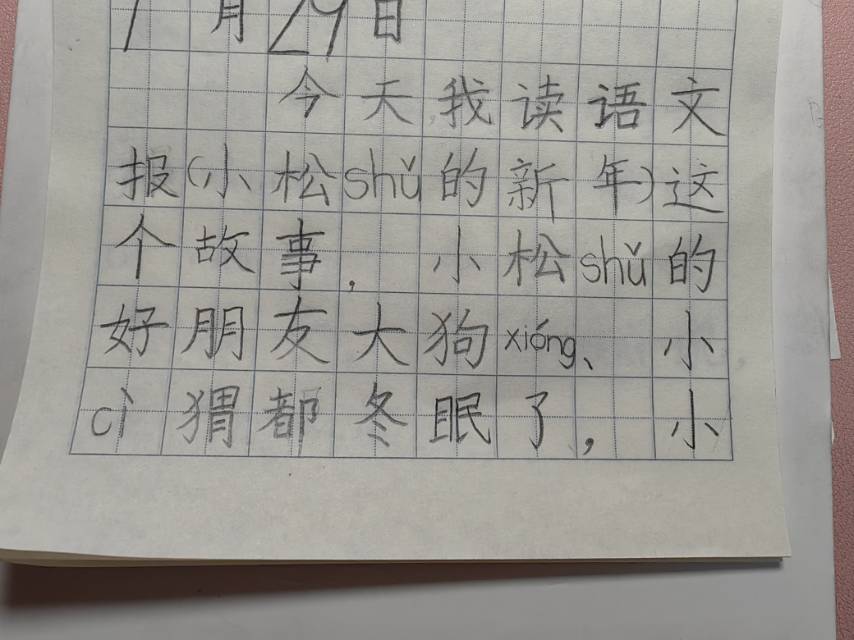 1月29日
今天我读语文
报(小松shǔ的新年)这
个故事，小松shǔ的
好朋友大狗xióng、小
cì猬都冬眠了，小